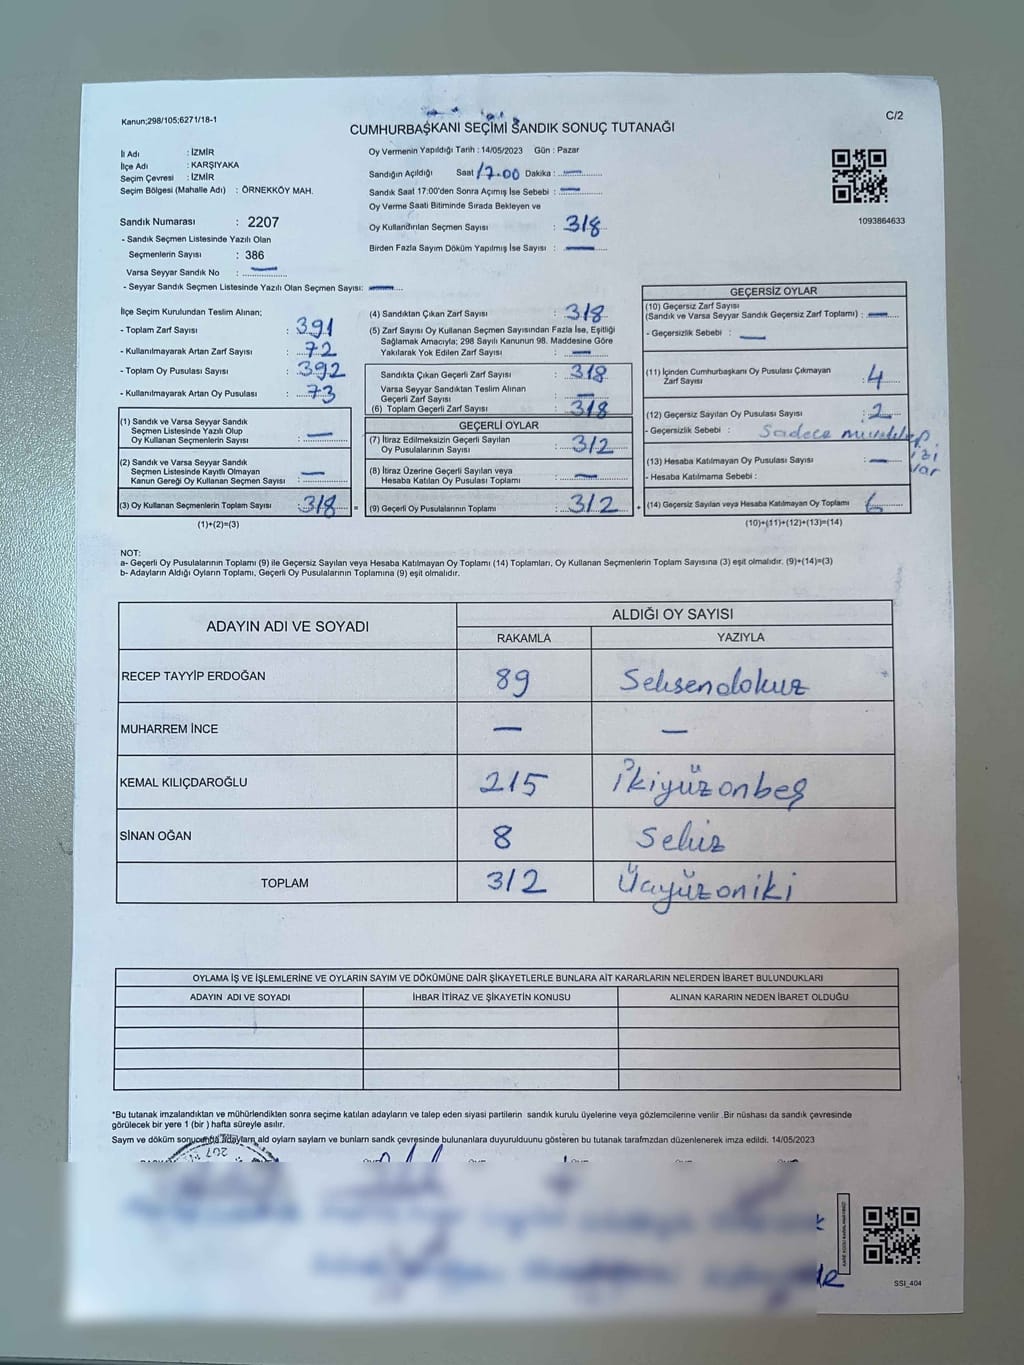 Kanun;298/105;6271/18-1
C/2
CUMHURBAŞKANI SEÇİMİ SANDIK SONUÇ TUTANAĞI
İl Adı : İZMİR
İlçe Adı : KARŞIYAKA
Seçim Çevresi : İZMİR
Seçim Bölgesi (Mahalle Adı) : ÖRNEKKÖY MAH.
Oy Vermenin Yapıldığı Tarih : 14/05/2023 Gün : Pazar
Sandığın Açıldığı Saat 17.00 Dakika : —
Sandık Saat 17:00'den Sonra Açımış İse Sebebi : —
Oy Verme Saati Bitiminde Sırada Bekleyen ve
Oy Kullandırılan Seçmen Sayısı : 318
Birden Fazla Sayım Döküm Yapılmış İse Sayısı : —
1093864633
Sandık Numarası : 2207
- Sandık Seçmen Listesinde Yazılı Olan
Seçmenlerin Sayısı : 386
Varsa Seyyar Sandık No : —
- Seyyar Sandık Seçmen Listesinde Yazılı Olan Seçmen Sayısı: —
İlçe Seçim Kurulundan Teslim Alınan;
- Toplam Zarf Sayısı : 391
- Kullanılmayarak Artan Zarf Sayısı : 72
- Toplam Oy Pusulası Sayısı : 392
- Kullanılmayarak Artan Oy Pusulası : 73
(1) Sandık ve Varsa Seyyar Sandık
Seçmen Listesinde Yazılı Olup
Oy Kullanan Seçmenlerin Sayısı : —
(2) Sandık ve Varsa Seyyar Sandık
Seçmen Listesinde Kayıtlı Olmayan
Kanun Gereği Oy Kullanan Seçmen Sayısı : —
(3) Oy Kullanan Seçmenlerin Toplam Sayısı : 318 =
(1)+(2)=(3)
(4) Sandıktan Çıkan Zarf Sayısı : 318
(5) Zarf Sayısı Oy Kullanan Seçmen Sayısından Fazla İse, Eşitliği
Sağlamak Amacıyla; 298 Sayılı Kanunun 98. Maddesine Göre
Yakılarak Yok Edilen Zarf Sayısı : —
Sandıkta Çıkan Geçerli Zarf Sayısı : 318
Varsa Seyyar Sandıktan Teslim Alınan
Geçerli Zarf Sayısı : —
(6) Toplam Geçerli Zarf Sayısı : 318
GEÇERLİ OYLAR
(7) İtiraz Edilmeksizin Geçerli Sayılan
Oy Pusulalarının Sayısı : 312
(8) İtiraz Üzerine Geçerli Sayılan veya
Hesaba Katılan Oy Pusulası Toplamı : —
(9) Geçerli Oy Pusulalarının Toplamı : 312 +
GEÇERSİZ OYLAR
(10) Geçersiz Zarf Sayısı
(Sandık ve Varsa Seyyar Sandık Geçersiz Zarf Toplamı) : —
- Geçersizlik Sebebi : —
(11) İçinden Cumhurbaşkanı Oy Pusulası Çıkmayan
Zarf Sayısı : 4
(12) Geçersiz Sayılan Oy Pusulası Sayısı : 2
- Geçersizlik Sebebi : Sadece mürekkep
izi
var
(13) Hesaba Katılmayan Oy Pusulası Sayısı : —
- Hesaba Katılmama Sebebi :
(14) Geçersiz Sayılan veya Hesaba Katılmayan Oy Toplamı : 6
(10)+(11)+(12)+(13)=(14)
NOT:
a- Geçerli Oy Pusulalarının Toplamı (9) ile Geçersiz Sayılan veya Hesaba Katılmayan Oy Toplamı (14) Toplamları, Oy Kullanan Seçmenlerin Toplam Sayısına (3) eşit olmalıdır. (9)+(14)=(3)
b- Adayların Aldığı Oyların Toplamı, Geçerli Oy Pusulalarının Toplamına (9) eşit olmalıdır.
ADAYIN ADI VE SOYADI
ALDIĞI OY SAYISI
RAKAMLA YAZIYLA
RECEP TAYYİP ERDOĞAN 89 Seksendokuz
MUHARREM İNCE — —
KEMAL KILIÇDAROĞLU 215 İkiyüzonbeş
SİNAN OĞAN 8 Sekiz
TOPLAM 312 Üçyüzoniki
OYLAMA İŞ VE İŞLEMLERİNE VE OYLARIN SAYIM VE DÖKÜMÜNE DAİR ŞİKAYETLERLE BUNLARA AİT KARARLARIN NELERDEN İBARET BULUNDUKLARI
ADAYIN ADI VE SOYADI İHBAR İTİRAZ VE ŞİKAYETİN KONUSU ALINAN KARARIN NEDEN İBARET OLDUĞU
*Bu tutanak imzalandıktan ve mühürlendikten sonra seçime katılan adayların ve talep eden siyasi partilerin sandık kurulu üyelerine veya gözlemcilerine verilir .Bir nüshası da sandık çevresinde
görülecek bir yere 1 (bir ) hafta süreyle asılır.
Sayım ve döküm sonucunda adayların ald oyların sayların ve bunların sandk çevresinde bulunanlara duyurulduunu gösteren bu tutanak tarafmzdan düzenlenerek imza edildi. 14/05/2023
SSI_404